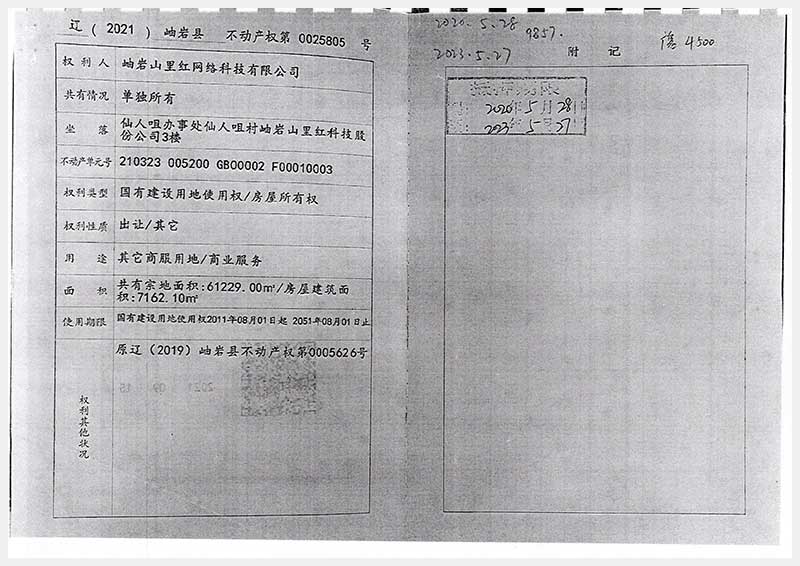 辽(2021)岫岩县 不动产权第0025805号
权利人 岫岩山里红网络科技有限公司
共有情况 单独所有
坐落 仙人咀办事处仙人咀村岫岩山里红科技股
份公司3楼
不动产单元号 210323 005200 GB00002 F00010003
权利类型 国有建设用地使用权/房屋所有权
权利性质 出让/其它
用途 其它商服用地/商业服务
面积 共有宗地面积:61229.00㎡/房屋建筑面
积:7162.10㎡
使用期限 国有建设用地使用权2011年08月01日起 2051年08月01日止
原辽(2019)岫岩县不动产权第0005626号
权利其他状况
2020.5.28
9857.
2023.5.27
附记
4500
2020年5月28
2023年5月27